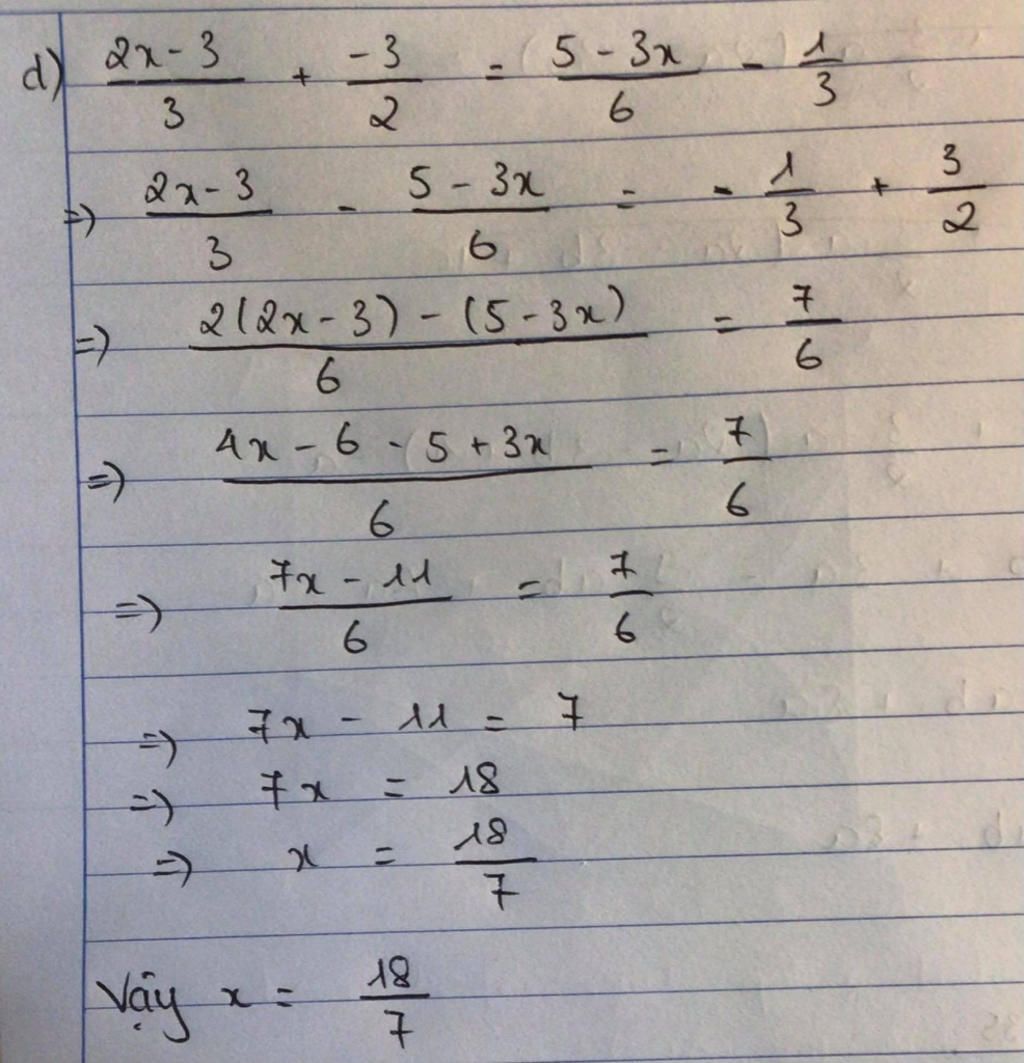 d) \frac{2x-3}{3} + \frac{-3}{2} = \frac{5-3x}{6} - \frac{1}{3}
=) \frac{2x-3}{3} - \frac{5-3x}{6} = -\frac{1}{3} + \frac{3}{2}
=) \frac{2(2x-3)-(5-3x)}{6} = \frac{7}{6}
=) \frac{4x-6-5+3x}{6} = \frac{7}{6}
=) \frac{7x-11}{6} = \frac{7}{6}
=) 7x - 11 = 7
=) 7x = 18
=) x = \frac{18}{7}
Vậy x = \frac{18}{7}